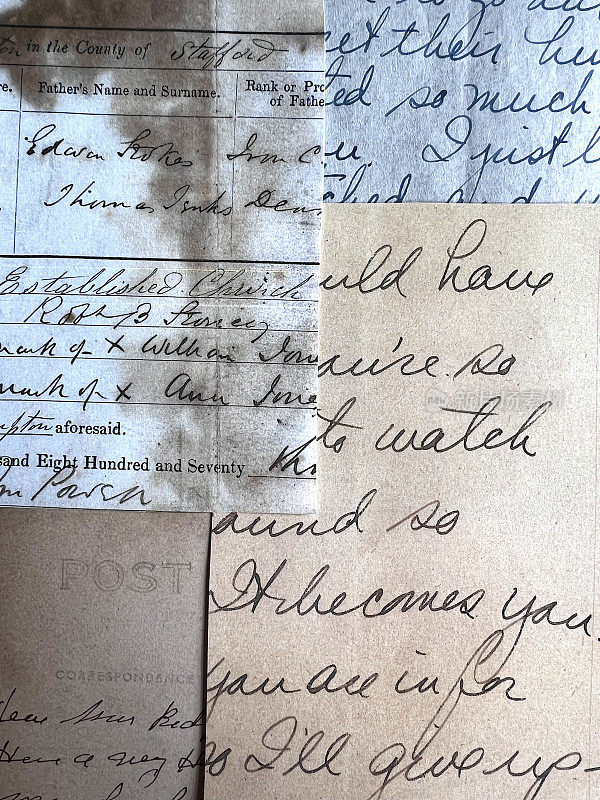 in the County of Stafford
re. Father's Name and Surname. Rank or Pro
of Fathe
Edwin Stokes Iron C
Thomas Jenks
Established Church
Robt B Stoney
mark of X William
mark of X Ann
mpton aforesaid.
sand Eight Hundred and Seventy
Powell
to go
et their hu
ted so much
I just
and
uld have
ou're so
to watch
ound so
It becomes you.
you are in for
so I'll give up-
POST
CORRESPONDENCE
Dear
Have a